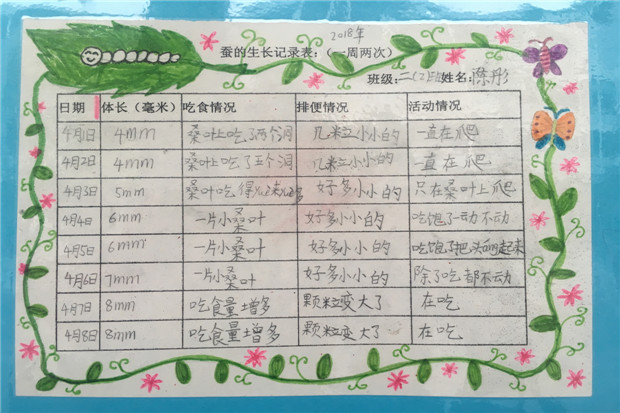 2018年
蚕的生长记录表:(一周两次)
班级:二(2)班姓名:陈彤
日期 体长(毫米) 吃食情况 排便情况 活动情况
4月1日 4mm 桑叶上吃了两个洞 几粒小小的 一直在爬
4月2日 4mm 桑叶上吃了五个洞 几粒小小的 一直在爬
4月3日 5mm 桑叶吃得 好多小小的 只在桑叶上爬
4月4日 6mm 一片小桑叶 好多小小的 吃饱了一动不动
4月5日 6mm 一片小桑叶 好多小小的 吃饱了把头 起来
4月6日 7mm 一片小桑叶 好多小小的 除了吃都不动
4月7日 8mm 吃食量增多 颗粒变大了 在吃
4月8日 8mm 吃食量增多 颗粒变大了 在吃